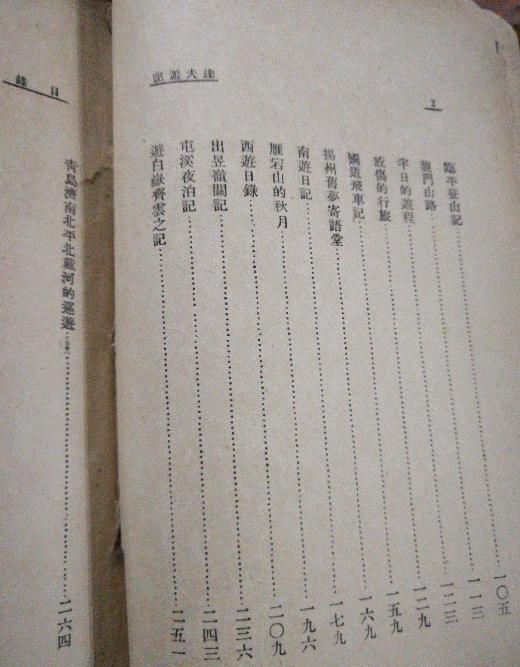 2
達夫遊記
臨平登山記……一〇五
龍門山路……一一三
半日的遊程……一二三
感傷的行旅……一二九
國道飛車記……一五九
揚州舊夢寄語堂……一六九
南遊日記……一七九
雁宕山的秋月……一九六
西遊日錄……二〇九
出昱嶺關記……二三六
屯溪夜泊記……二四三
遊白嶽齊雲之記……二五一
目錄
青島濟南北平北戴河的巡遊……二六四